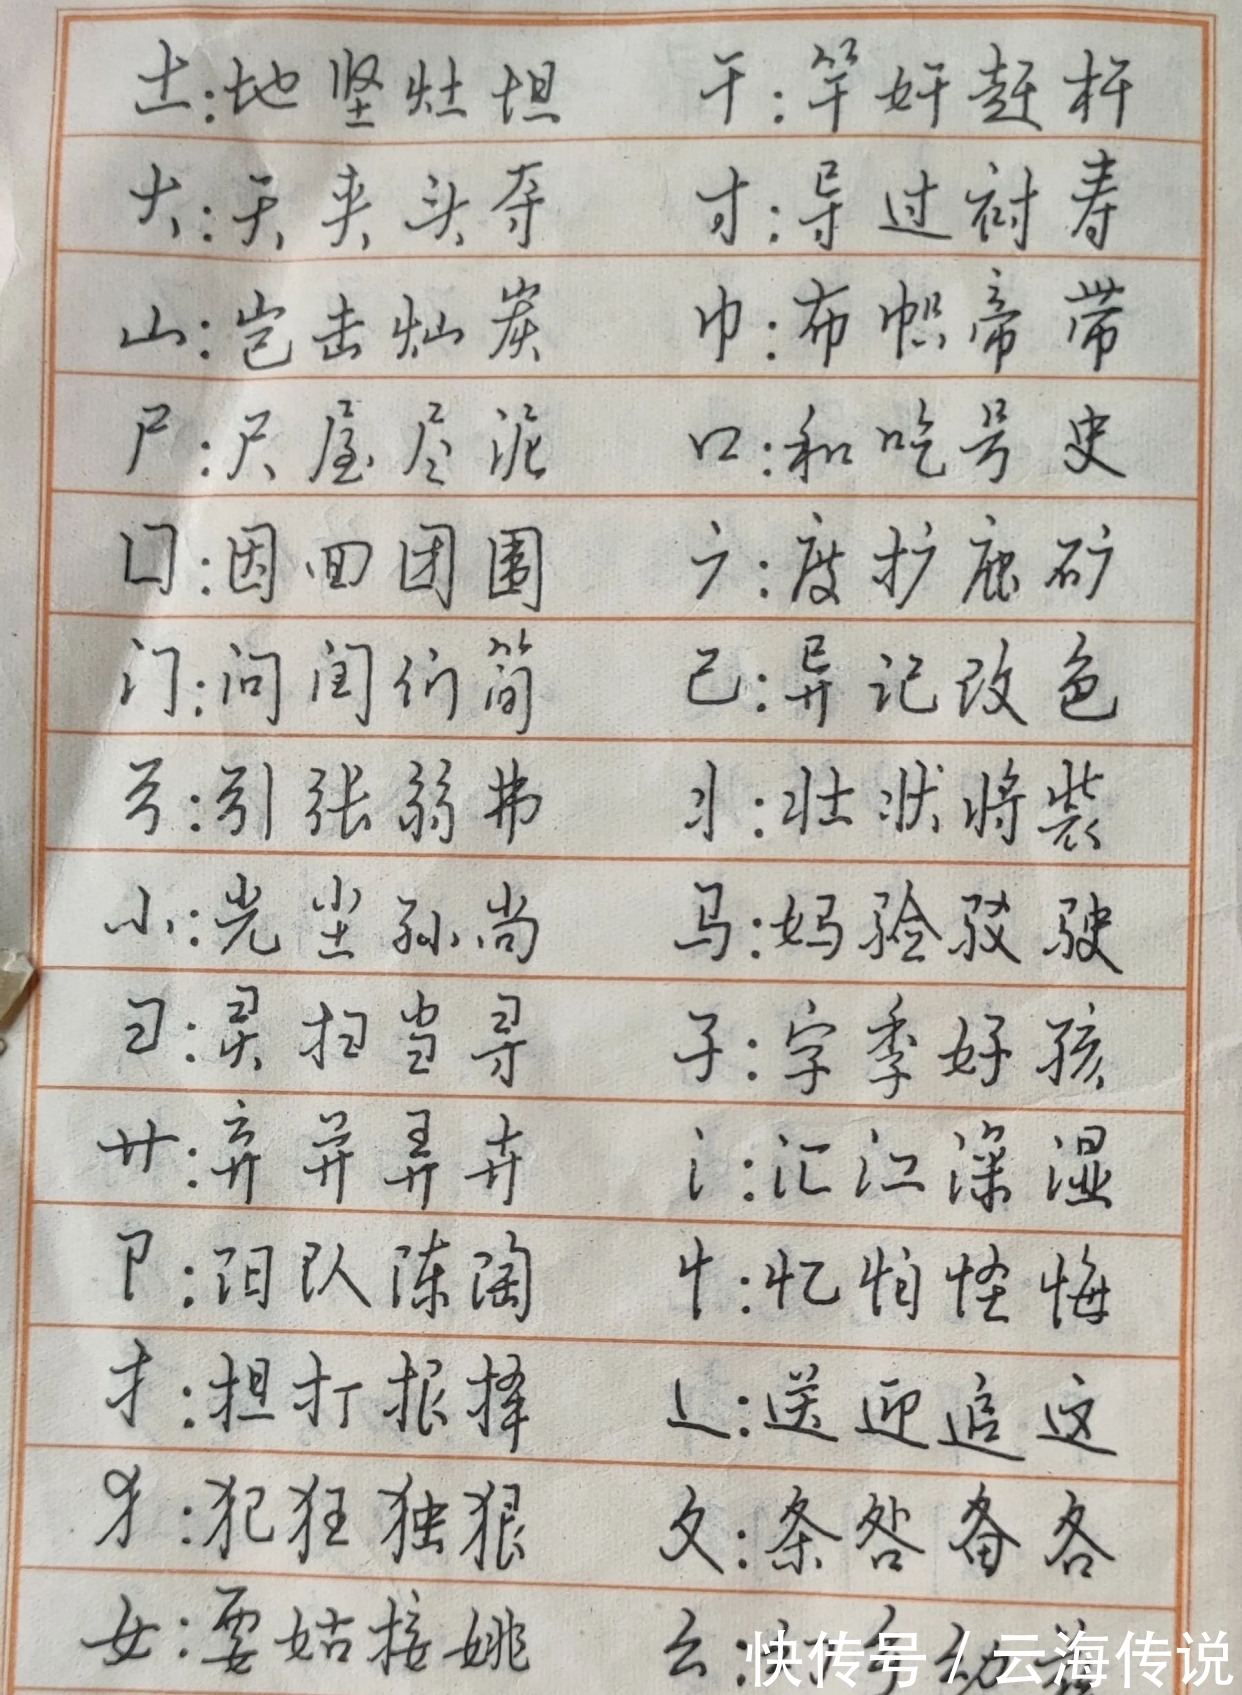 土:地坚灶坦 干:竿奸赶杆
大:天夹头夺 寸:导过衬寿
山:岂击灿炭 巾:布帜帝带
尸:尺屋尽泥 口:和吃号史
囗:因四团围 广:度扩庶矿
门:问闰们简 己:异记改色
弓:引张弱弗 丬:壮状将装
小:光尘孙尚 马:妈验驳驶
彐:灵扫当寻 子:字季好孩
廾:弃异弄卉 氵:汇江深湿
阝:阳队陈陶 忄:忆怕怪悔
扌:担打报择 辶:送迎追这
犭:犯狂独狠 夂:条咎备各
女:要姑接姚 
快传号/云海传说